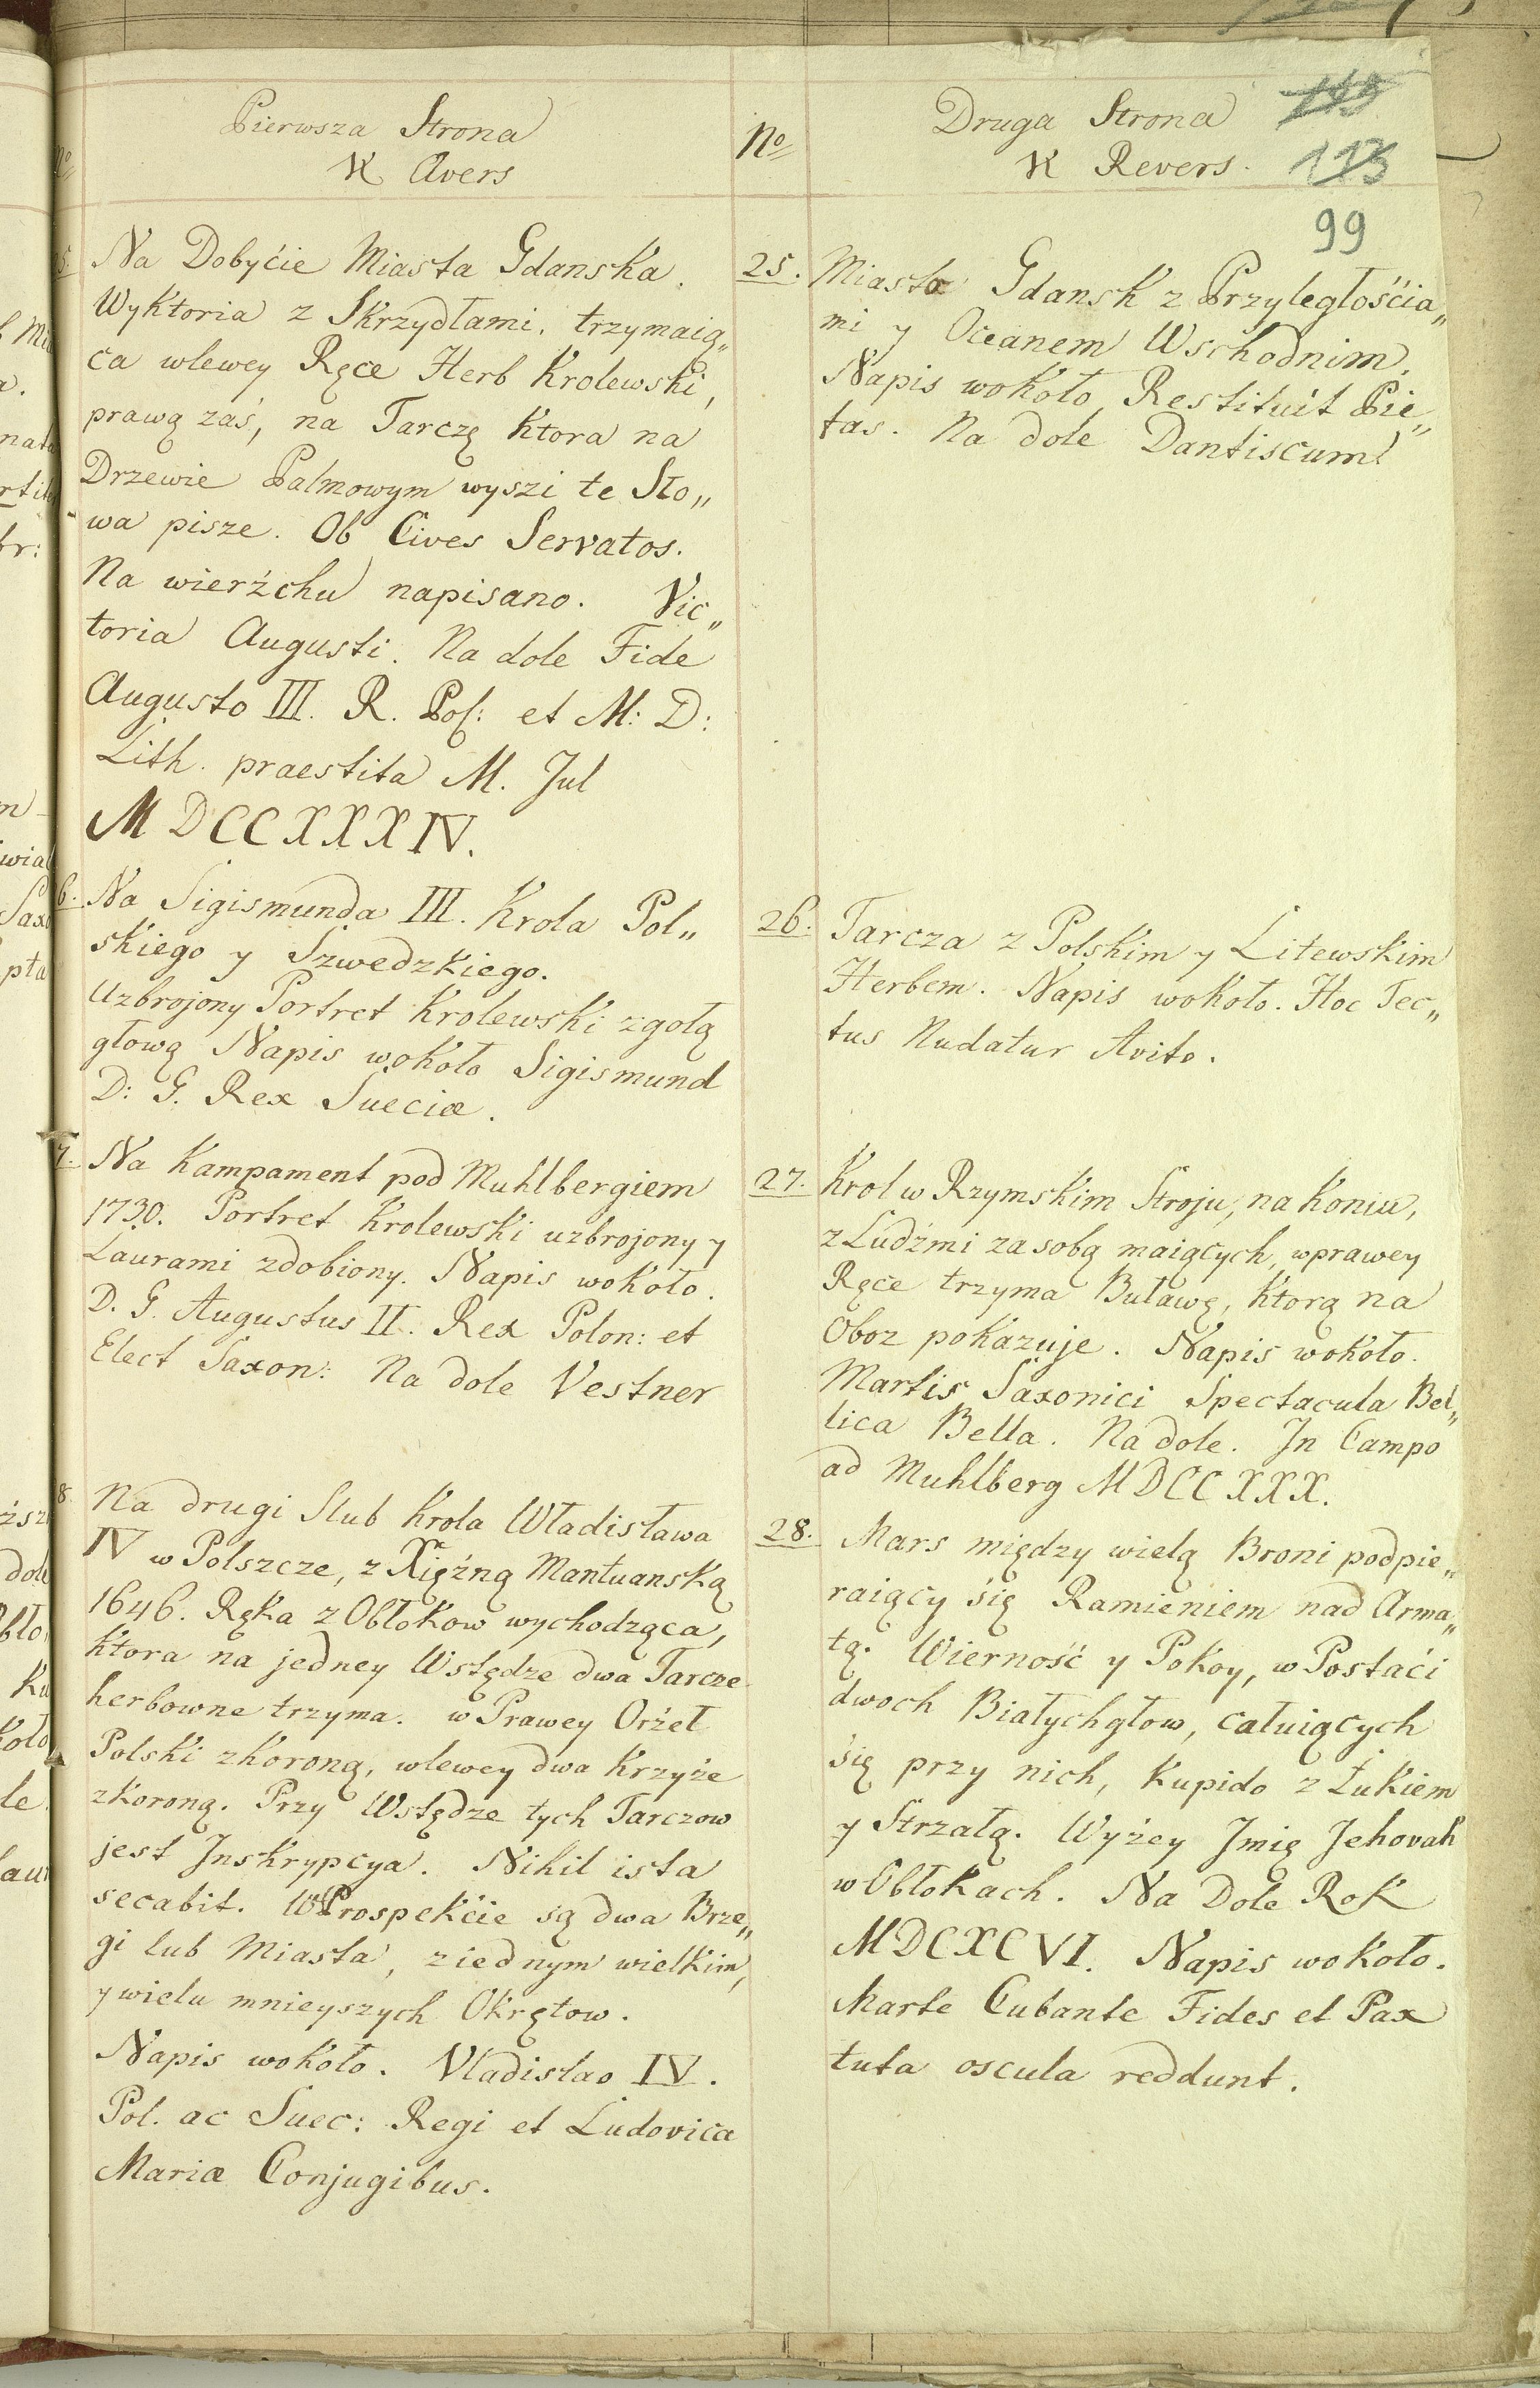 Pierwsza Strona
Avers
Na Dobyćie Miasta Gdanska.
Wyktoria z Skrzydłami, trzymaią„
ca wlewey Ręce Herb Krolewski,
prawą zaś, na Tarczę ktora na
Drzewie Palmowym wyszi te Sło„
wa pisze. Ob Cives Servatos.
Na wierźchu napisano. Vic„
toria Augusti. Na dole Fide
Augusto III. R. Pol: et M: D:
Lith. praestita M. Jul
MDCCXXXIV.
Na Sigismunda III. Krola Pol„
skiego y Szwedzkiego.
Uzbrojony Portret Krolewski zgołą
głową Napis wokoło Sigismund
D: G. Rex Sueciæ.
7. Na Kampament pod Muhlbergiem
1730. Portret Krolewski uzbrojony y
Laurami zdobiony. Napis wokoło.
D. G. Augustus II. Rex Polon: et
Elect Saxon: Na dole Vestner
8. Na drugi Slub Krola Władisława
IV w Polszcze, z Xięźną Mantuanską
1646. Ręka z Obłokow wychodząca,
ktora na jedney Wstędze dwa Tarcze
herbowne trzyma. w Prawey Orźeł
Polski zkoroną, wlewey dwa Krzyże
zkoroną. Przy Wstędze tych Tarczow
jest Inskrypcya. Nihil ista
secabit. W Prospekćie są dwa Brze„
gi lub Miasta, ziednym wielkim,
y wielu mnieyszych Okrętow.
Napis wokoło. Vladislao IV.
Pol. ac Suec: Regi et Ludovica
Mariæ Conjugibus.
No
Druga Strona
Revers.
113
99
25. Miasto Gdansk z Przyległośćia„
mi y Oceanem Wschodnim.
Napis wokoło Restituit Pie„
tas. Na dole Dantiscum
26. Tarcza z Polskim y Litewskim
Herbem. Napis wokoło. Hoc Tec„
tus Nudatur Avito.
27. Krol w Rzymskim Stroju, na Koniu,
z Ludźmi za sobą maiących, wprawey
Ręce trzyma Buławę, ktorą na
Oboz pokazuje. Napis wokoło.
Martis Saxonici Spectacula Bel„
lica Bella. Na dole. In Campo
ad Muhlberg MDCCXXX.
28. Mars między wielą Broni podpie„
raiący się Ramieniem nad Arma„
tą. Wierność y Pokoy, w Postaći
dwoch Białychgłow, całuiących
się przy nich, Kupido z Łukiem
y Strzałą. Wyżey Imię Jehovah
w Obłokach. Na Dole Rok
MDCXCVI. Napis wokoło.
Marte Cubante Fides et Pax
tuta oscula reddunt.